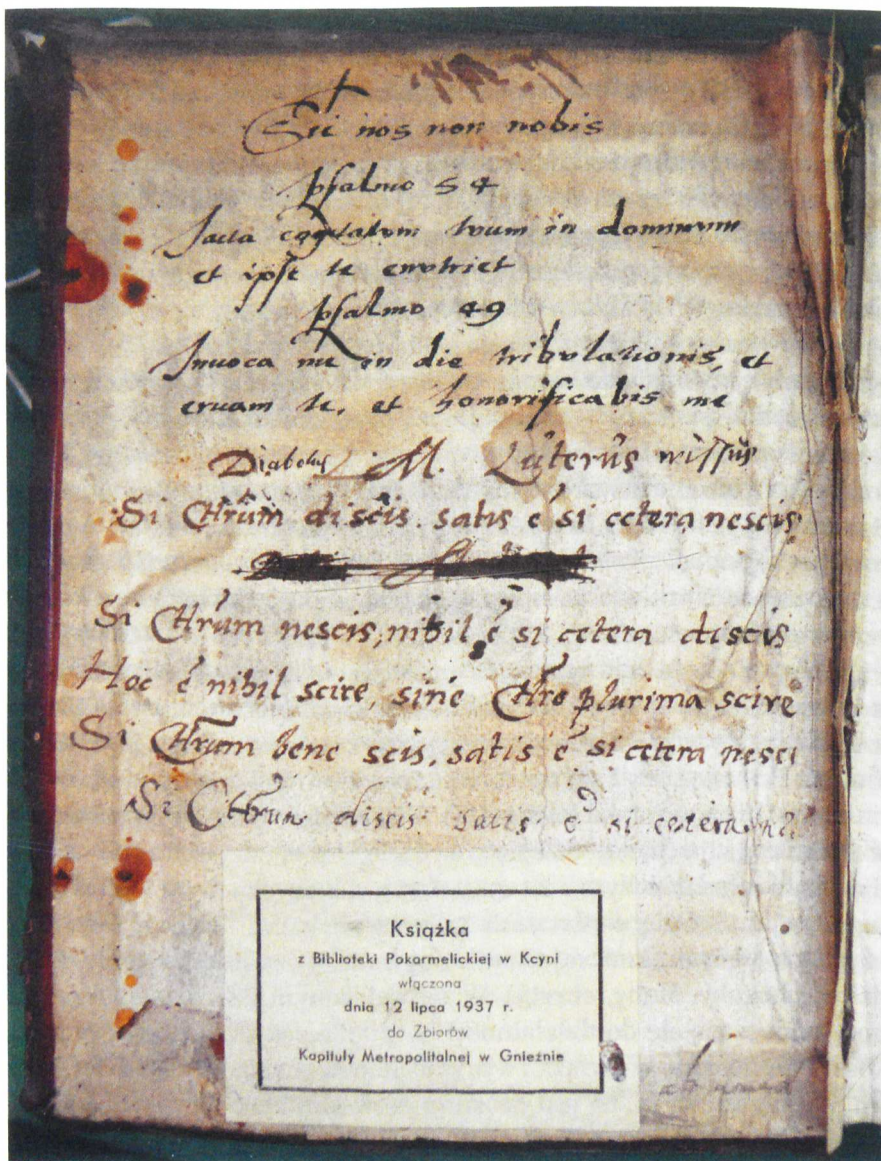 Sic nos non nobis
psalmo 54
Iacta cogitatum tuum in dominum
et ipse te enutriet
psalmo 49
Inuoca me in die tribulationis, et
eruam te, et honorificabis me
Diabolus M. Lŭterŭs wissŭs
Si Chr̃um discis. satis ẽ si cetera nescis
Si Chr̃um nescis, nihil ẽ si cetera discis
Hoc ẽ nihil scire, sine Chr̃o plurima scire
Si Chr̃um bene scis, satis ẽ si cetera nesci
Si Chr̃um discis satis ẽ si cetera
Książka
z Biblioteki Pokarmelickiej w Kcyni
włączona
dnia 12 lipca 1937 r.
do Zbiorów
Kapituły Metropolitalnej w Gnieźnie